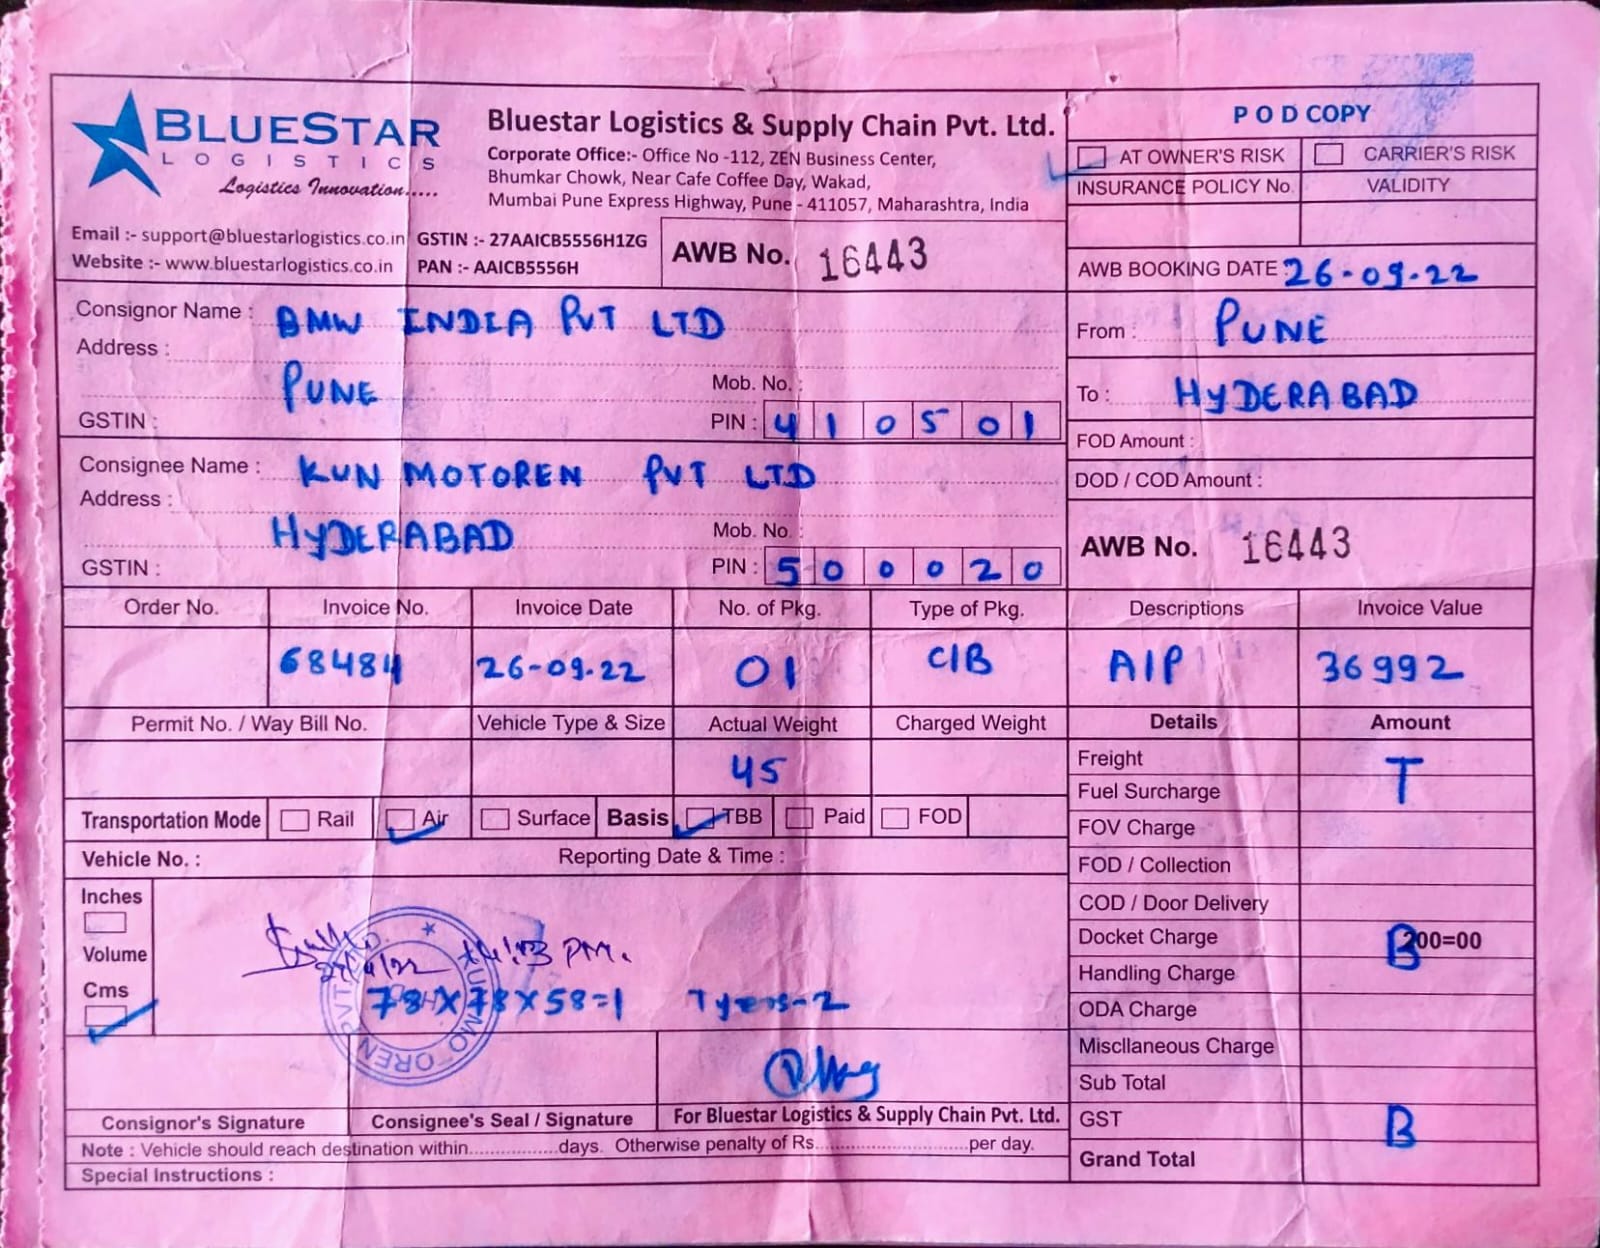 BLUESTAR
LOGISTICS
Logistics Innovation.....
Bluestar Logistics & Supply Chain Pvt. Ltd.
Corporate Office:- Office No -112, ZEN Business Center,
Bhumkar Chowk, Near Cafe Coffee Day, Wakad,
Mumbai Pune Express Highway, Pune - 411057, Maharashtra, India
Email :- support@bluestarlogistics.co.in
Website :- www.bluestarlogistics.co.in
GSTIN :- 27AAICB5556H1ZG
PAN :- AAICB5556H
AWB No. 16443
P O D COPY
AT OWNER'S RISK CARRIER'S RISK
INSURANCE POLICY No. VALIDITY
AWB BOOKING DATE : 26-09-22
Consignor Name : BMW INDIA PVT LTD
Address :
PUNE Mob. No. :
GSTIN : PIN : 410501
From : PUNE
To : HYDERABAD
FOD Amount :
DOD / COD Amount :
Consignee Name : KUN MOTOREN PVT LTD
Address :
HYDERABAD Mob. No. :
GSTIN : PIN : 500020
AWB No. 16443
Order No. Invoice No. Invoice Date No. of Pkg. Type of Pkg. Descriptions Invoice Value
68484 26-09-22 01 C/B A/P 36992
Permit No. / Way Bill No. Vehicle Type & Size Actual Weight Charged Weight Details Amount
45
Transportation Mode Rail Air Surface Basis TBB Paid FOD
Vehicle No. : Reporting Date & Time :
Inches
Volume
Cms
PM.
78X78X58=1 Tyers-2
KUN MOTOREN PVT
Freight T
Fuel Surcharge
FOV Charge
FOD / Collection
COD / Door Delivery
Docket Charge B 200=00
Handling Charge
ODA Charge
Miscllaneous Charge
Sub Total
GST B
Grand Total
Consignor's Signature Consignee's Seal / Signature For Bluestar Logistics & Supply Chain Pvt. Ltd.
Note : Vehicle should reach destination within.................days. Otherwise penalty of Rs.............................per day.
Special Instructions :